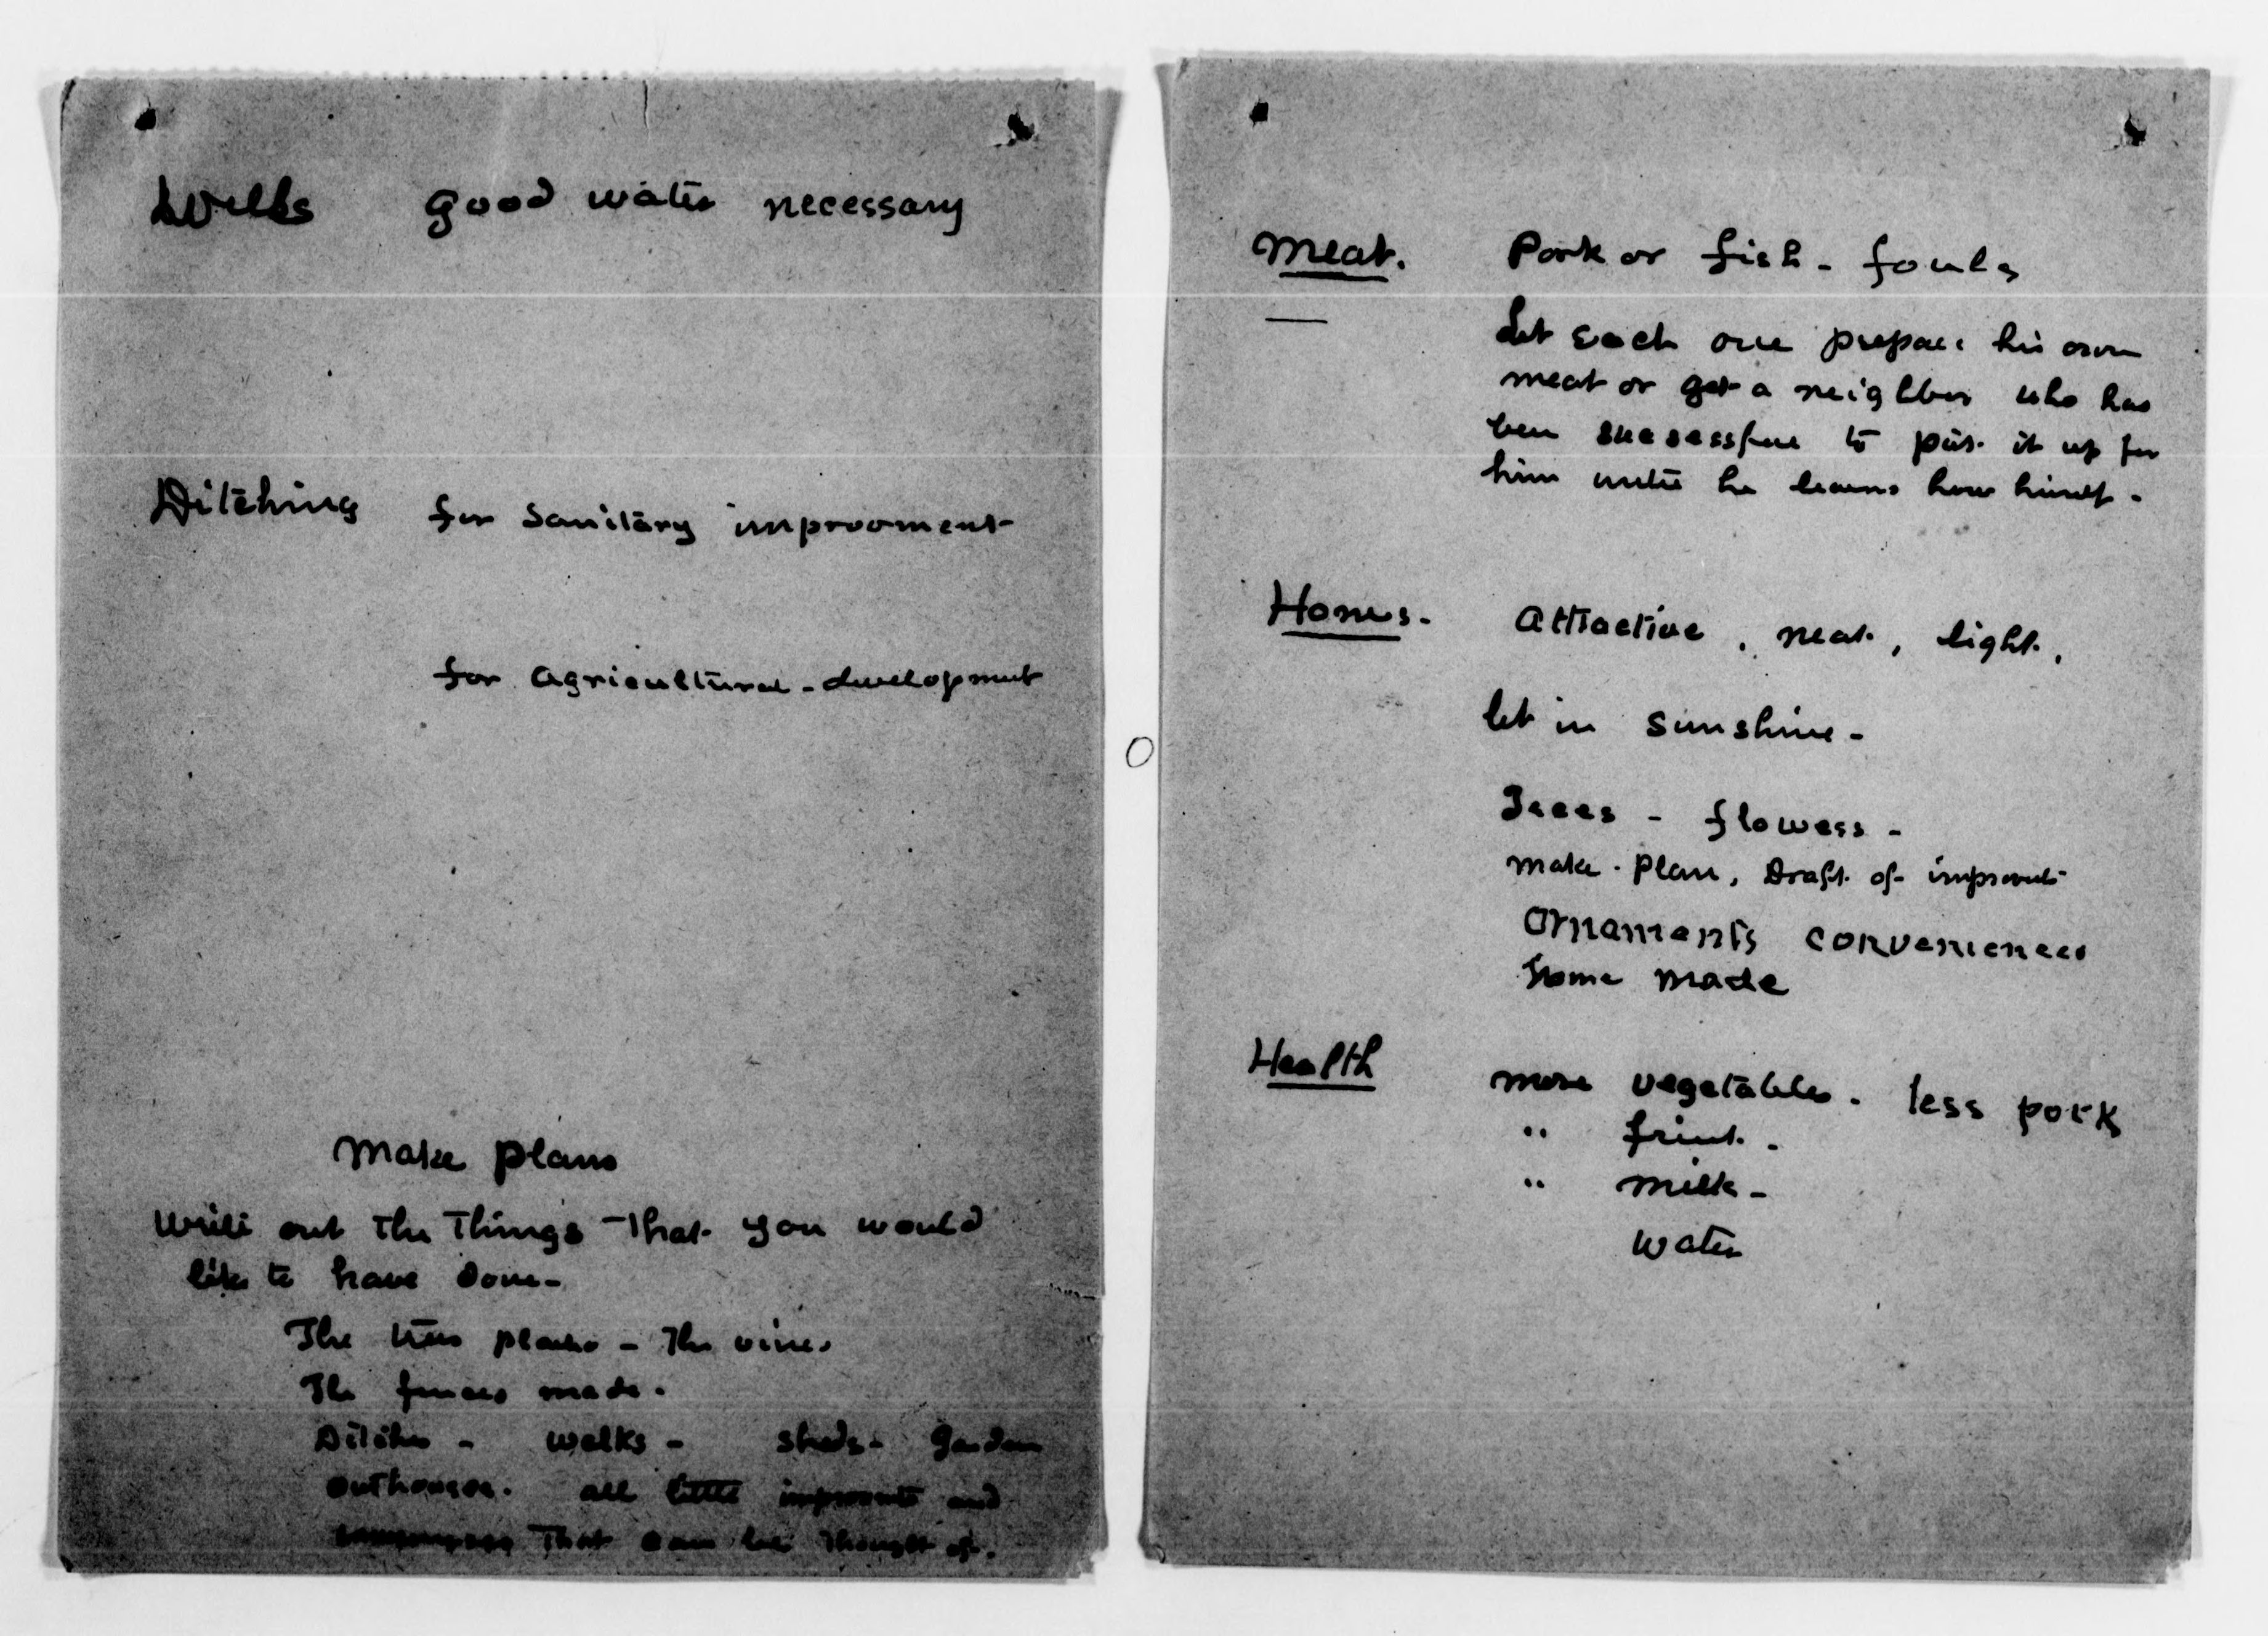 Wells good water necessary
Ditching for Sanitary improoment
for agricultural - development
make plans
write out the things that you would
like to have done -
The trees places - The vines
The fences made.
Ditches - walks - sheds - garden
outhouses. all little improvmts and
that can be thought of.
Meat. Pork or fish - fouls
Let each one prepare his own
meat or get a neighbor who has
been successful to put it up for
him until he learns how himself -
Homes. attractive, neat, light,
let in sunshine -
Trees - flowers -
make plan, Draft of improvmts
Ornaments conveniences
home made
Health more vegetables. less pork
" fruit -
" milk -
water